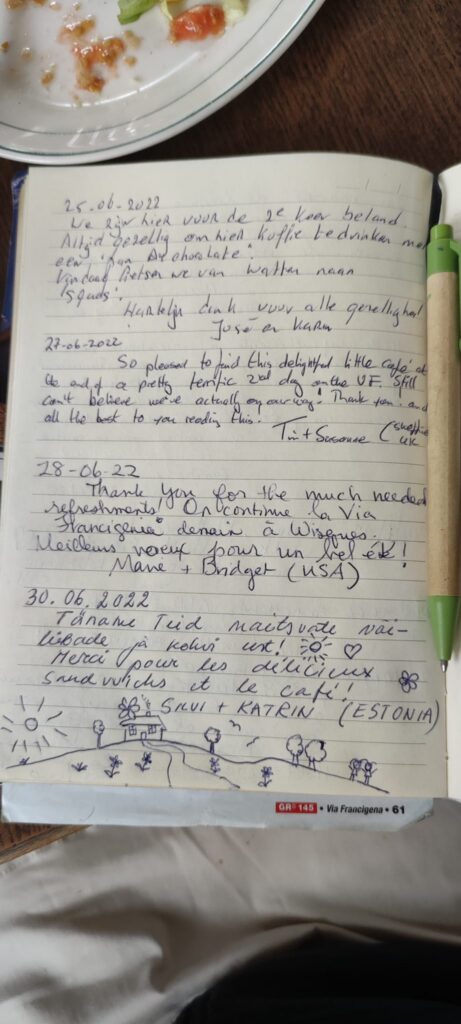 25.06-2022
We zijn hier voor de 2e keer beland
Altijd gezellig om hier koffie te drinken met
een "pain au chocolate".
Vandaag fietsen we van Watten naar
Hartelijk dank voor alle gezelligheid
José en Karin
27-06-2022
So pleased to find this delightful little café at
the end of a pretty terrific 2nd day on the VF. Still
can't believe we've actually on our way! Thank you and
all the best to you reading this.
Tim + Susanne (
UK
28-06-22
Thank You for the much needed
refreshments! On continue la Via
Francigenia demain à Wisques.
Meilleurs voeux pour un bel été!
+ Bridget (USA)
30.06.2022
Täname Teid maitsvate või-
leibade ja kohvi eest!
Merci pour les délicieux
sandwichs et le café!
SILVI + KATRIN (ESTONIA)
GR® 145 • Via Francigena • 61